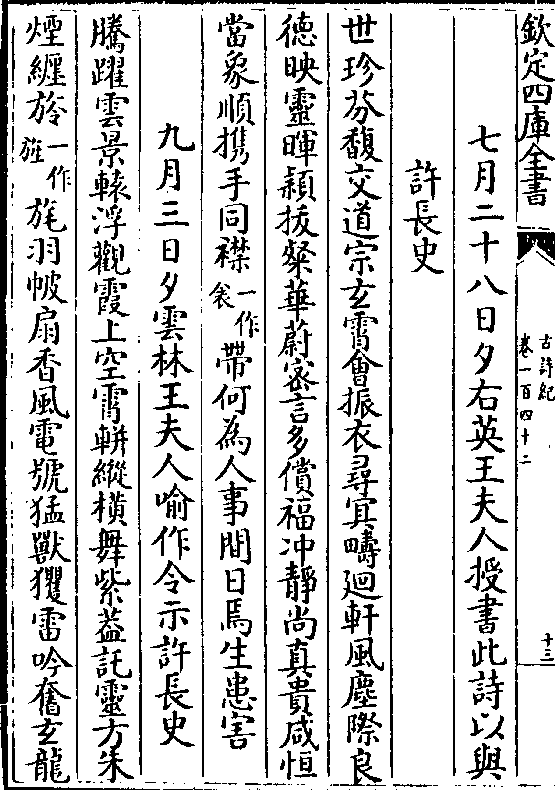 欽定四庫全書
古詩紀
卷一百四十二
十三
七月二十八日夕右英王夫人授書此詩以與
許長史
世珍芬馥交道宗玄霄會振衣尋冥疇廻軒風塵際良
德映靈暉穎拔粲華蔚密言多償福冲靜尚真貴咸恒
當象順携手同襟一作衾帶何為人事間日焉生患害
九月三日夕雲林王夫人喻作令示許長史
騰躍雲景轅浮觀霞上空霄軿縱橫舞紫葢託靈方朱
煙纏旍一作旌旄羽帔扇香風電號猛獸攫雷吟奮玄龍